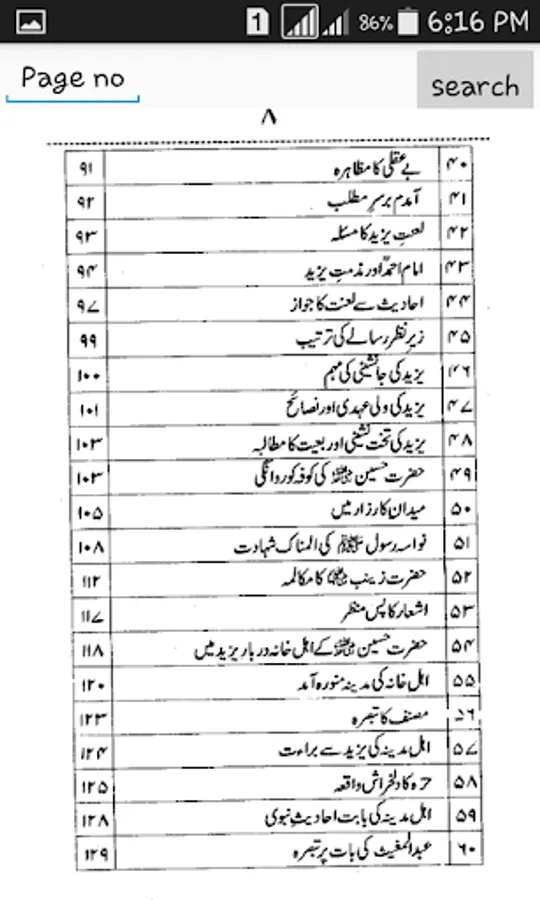 1 86% 6:16 PM
Page no search
۸
۴۰ بے عقلی کا مظاہرہ ۹۱
۴۱ آمدم برسرِ مطلب ۹۲
۴۲ لعنتِ یزید کا مسئلہ ۹۳
۴۳ امام احمدؒ اور مذمتِ یزید ۹۴
۴۴ احادیث سے لعنت کا جواز ۹۷
۴۵ زیرِ نظر رسالے کی ترتیب ۹۹
۴۶ یزید کی جانشینی کی مہم ۱۰۰
۴۷ یزید کی ولی عہدی اور نصائح ۱۰۱
۴۸ یزید کی تخت نشینی اور بیعت کا مطالبہ ۱۰۳
۴۹ حضرت حسین کی کوفہ کو روانگی ۱۰۳
۵۰ میدانِ کارزار میں ۱۰۵
۵۱ نواسہ رسول ﷺ کی المناک شہادت ۱۰۸
۵۲ حضرت زینب کا مکالمہ ۱۱۲
۵۳ اشعار کا پس منظر ۱۱۷
۵۴ حضرت حسین کے اہل خانہ دربارِ یزید میں ۱۱۸
۵۵ اہل خانہ کی مدینہ منورہ آمد ۱۲۰
۵۶ مصنف کا تبصرہ ۱۲۳
۵۷ اہل مدینہ کی یزید سے براءت ۱۲۴
۵۸ حرہ کا دلخراش واقعہ ۱۲۵
۵۹ اہل مدینہ کی بابت احادیثِ نبوی ۱۲۸
۶۰ عبدالمغیث کی بات پر تبصرہ ۱۲۹